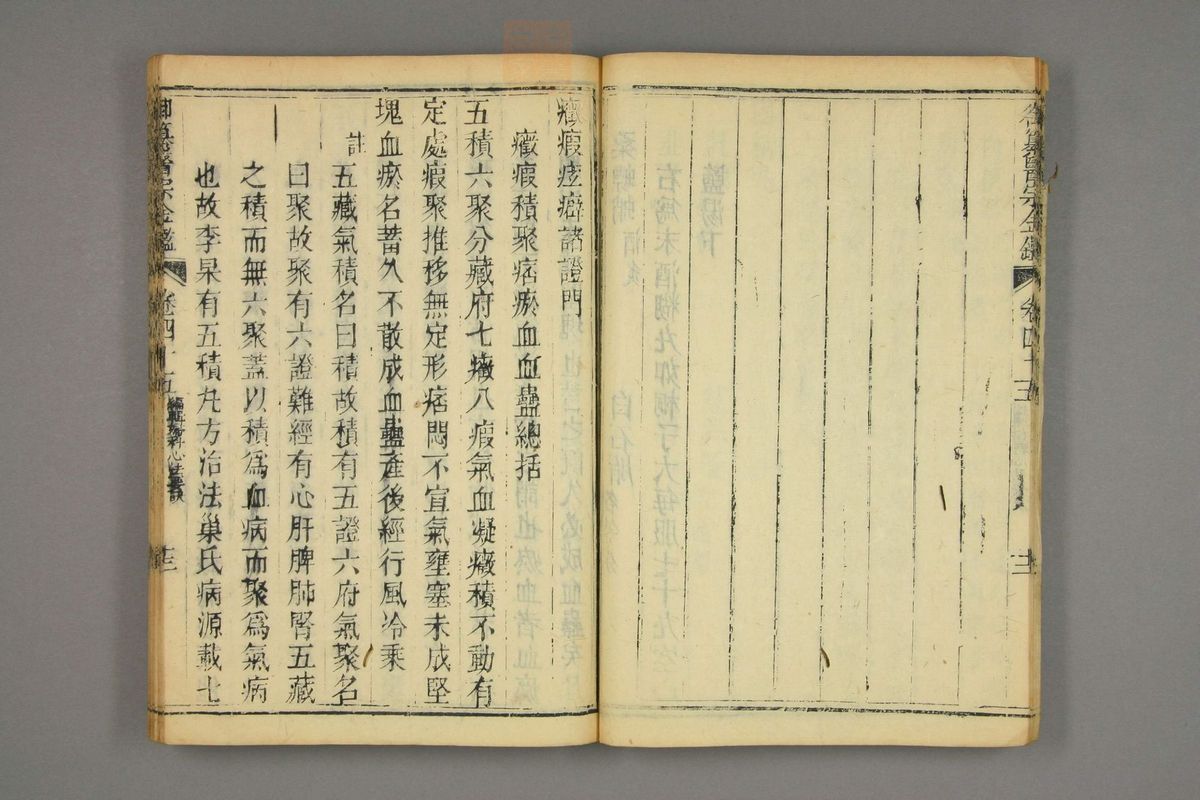 御纂醫宗金鑑 卷四十五
癥瘕痃癖諸證門
癥瘕積聚痞瘀血血蠱總括
五積六聚分藏府七癥八瘕氣血凝癥積不動有
定處瘕聚推移無定形痞悶不宣氣壅塞未成堅
塊血瘀名蓄久不散成血蠱產後經行風冷乘
註
五藏氣積名曰積故積有五證六府氣聚名
曰聚故聚有六證難經有心肝脾肺腎五藏
之積而無六聚蓋以積爲血病而聚爲氣病
也故李杲有五積丸方治法巢氏病源載七
御纂醫宗金鑑 卷四十五 編輯婦科心法要訣